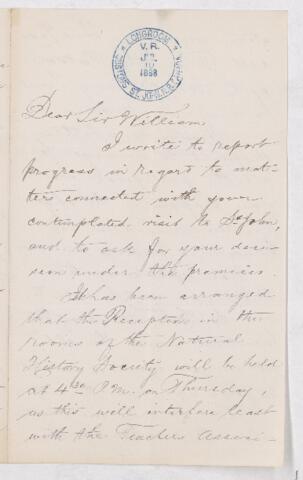 LONGROOM
V.R.
10
1888
CUSTOMS ST. JOHN N.B.
Dear Sir William
I write to report
progress in regard to mat-
ters connected with your
contemplated visit to St John,
and to ask for your deci-
sion under the premises.
It has been arranged
that the Reception in the
rooms of the Natural
History Society will be held
at 4.30 P.M. on Thursday,
as this will interfere least
with the Teachers Associ-